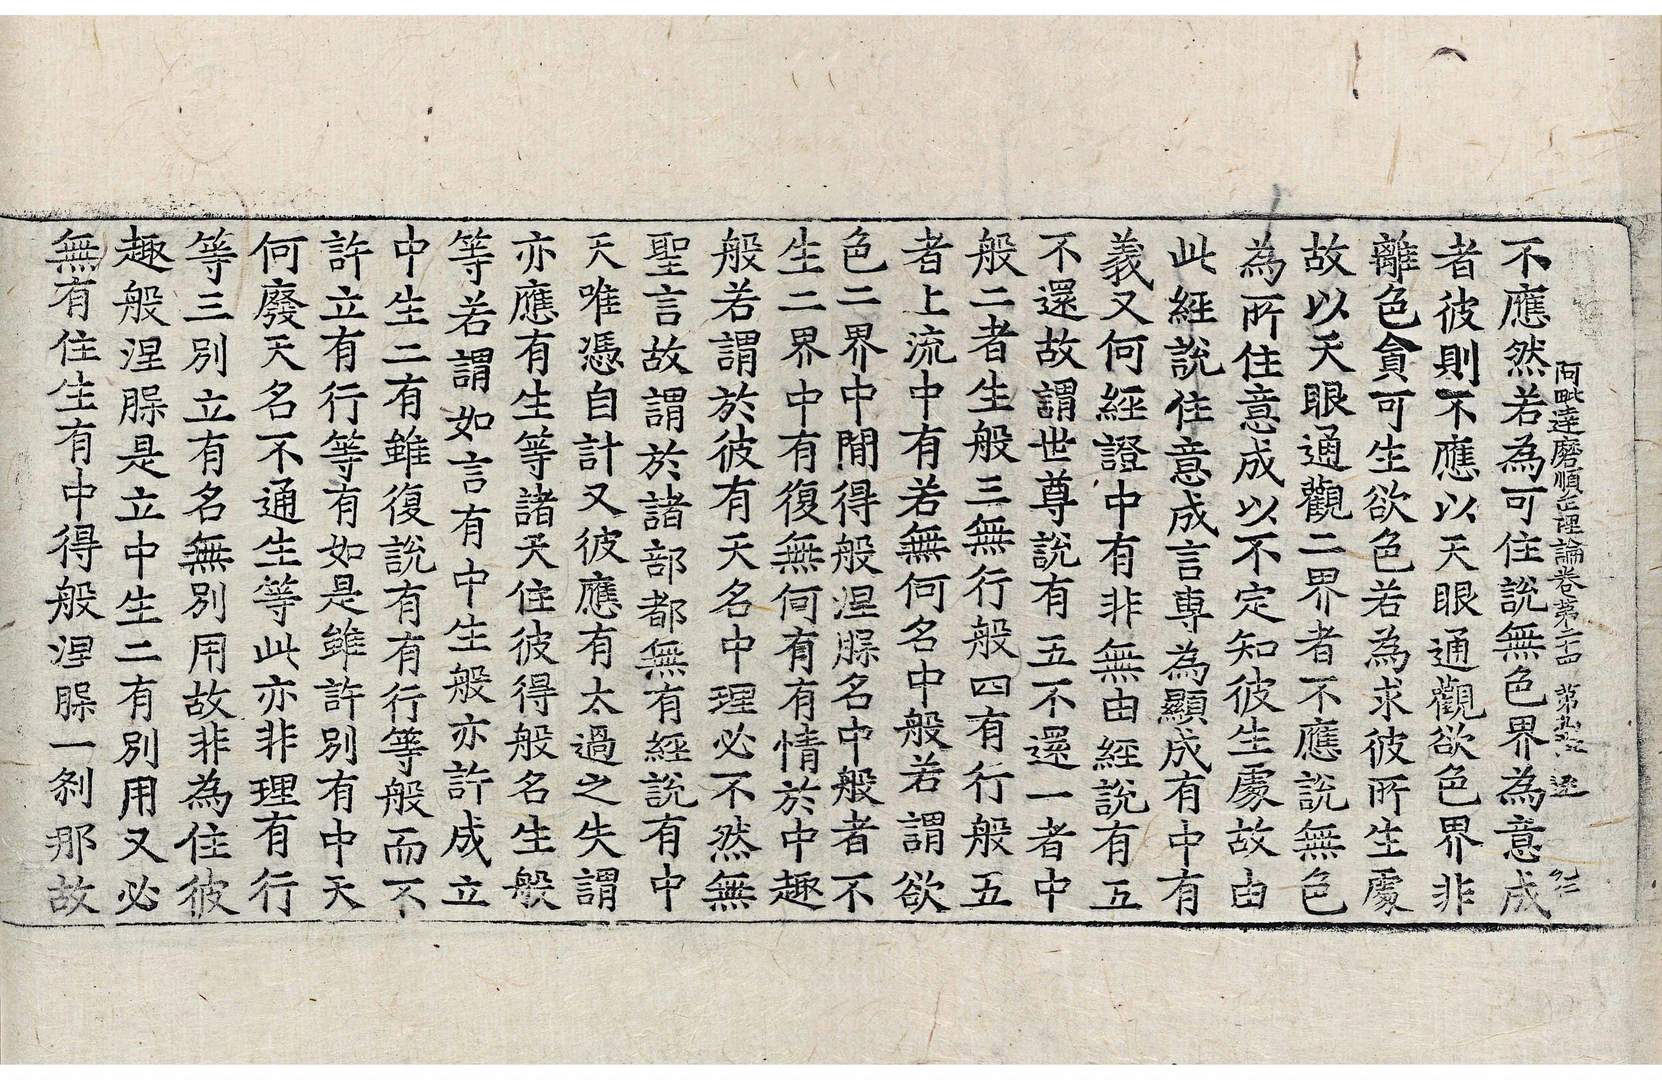 阿毗達磨順正理論卷第二十四 第九 逐
不應然若為可住說無色界為意成
者彼則不應以天眼通觀欲色界非
離色貪可生欲色若為求彼所生處
故以天眼通觀二界者不應說無色
為所住意成以不定知彼生處故由
此經說住意成言專為顯成有中有
義又何經證中有非無由經說有五
不還故謂世尊說有五不還一者中
般二者生般三無行般四有行般五
者上流中有若無何名中般若謂欲
色二界中間得般涅槃名中般者不
生二界中有復無何有有情於中趣
般若謂於彼有天名中理必不然無
聖言故謂於諸部都無有經說有中
天唯憑自計又彼應有太過之失謂
亦應有生等諸天住彼得般名生般
等若謂如言有中生般亦許成立
中生二有雖復說有有行等般而不
許立有行等有如是雖許別有中天
何廢天名不通生等此亦非理有行
等三別立有名無別用故非為住彼
趣般涅槃是立中生二有別用又必
無有住生有中得般涅槃一剎那故